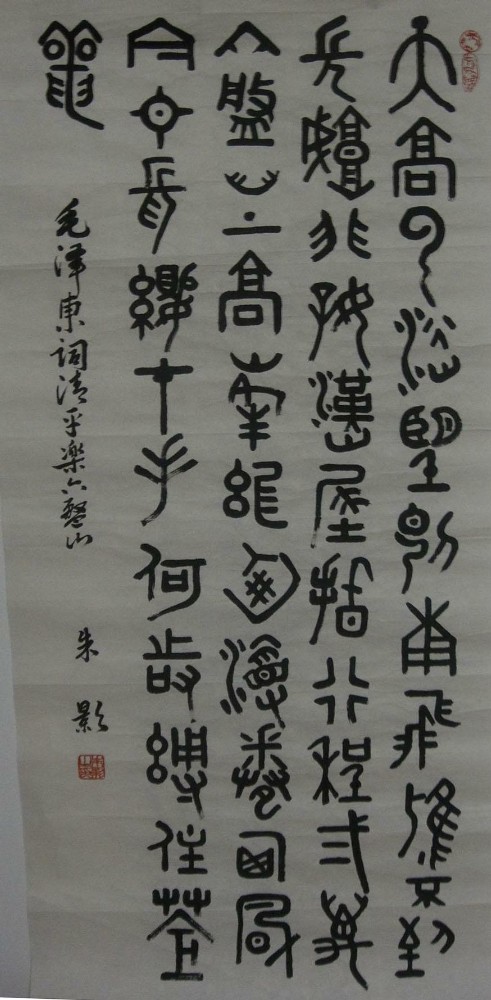 天高云淡望斷南飛雁不到
長城非好漢屈指行程弍萬
六盤山上高峯紅旗漫卷西風
今日長纓在手何時縛住蒼
龍
毛澤東詞清平樂六盤山
朱影